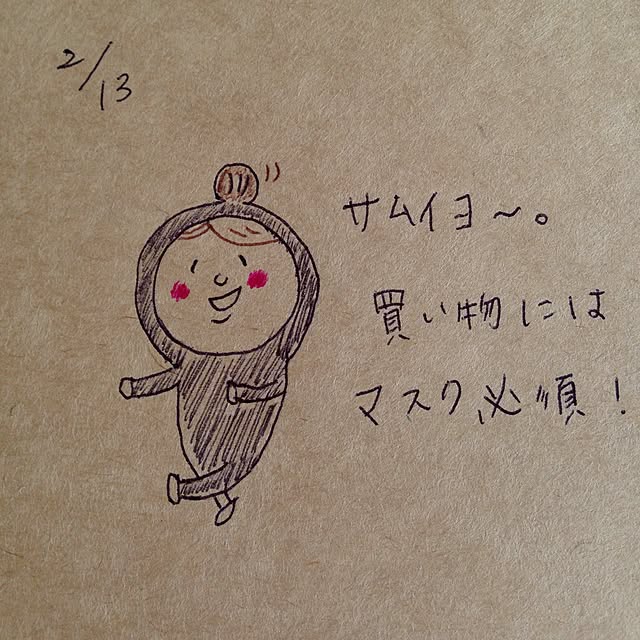 2/13
サムイヨ〜。
買い物には
マスク必須!